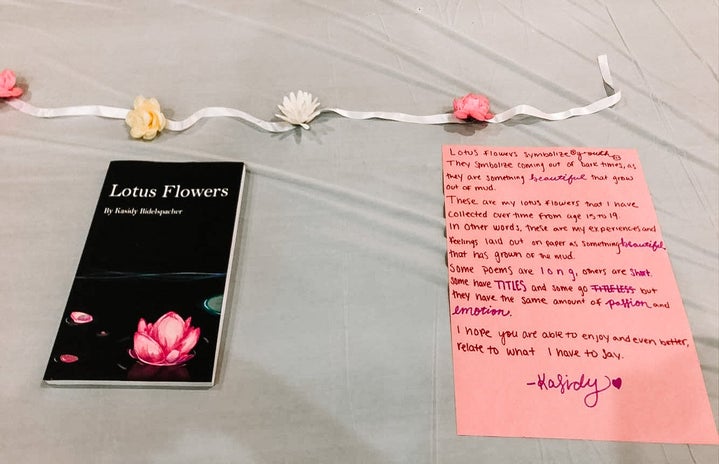 Lotus Flowers
By Kasidy Bidelspacher
Lotus Flowers symbolize growth
They symbolize coming out of dark times, as
they are something beautiful that grow
out of mud.
These are my lotus flowers that I have
collected over time from age 15 to 19.
In other words, these are my experiences and
feelings laid out on paper as something beautiful
that has grown of the mud.
Some poems are long, others are short.
some have TITLES and some go TITLELESS but
they have the same amount of passion and
emotion.
I hope you are able to enjoy and even better,
relate to what I have to say.
-Kasidy